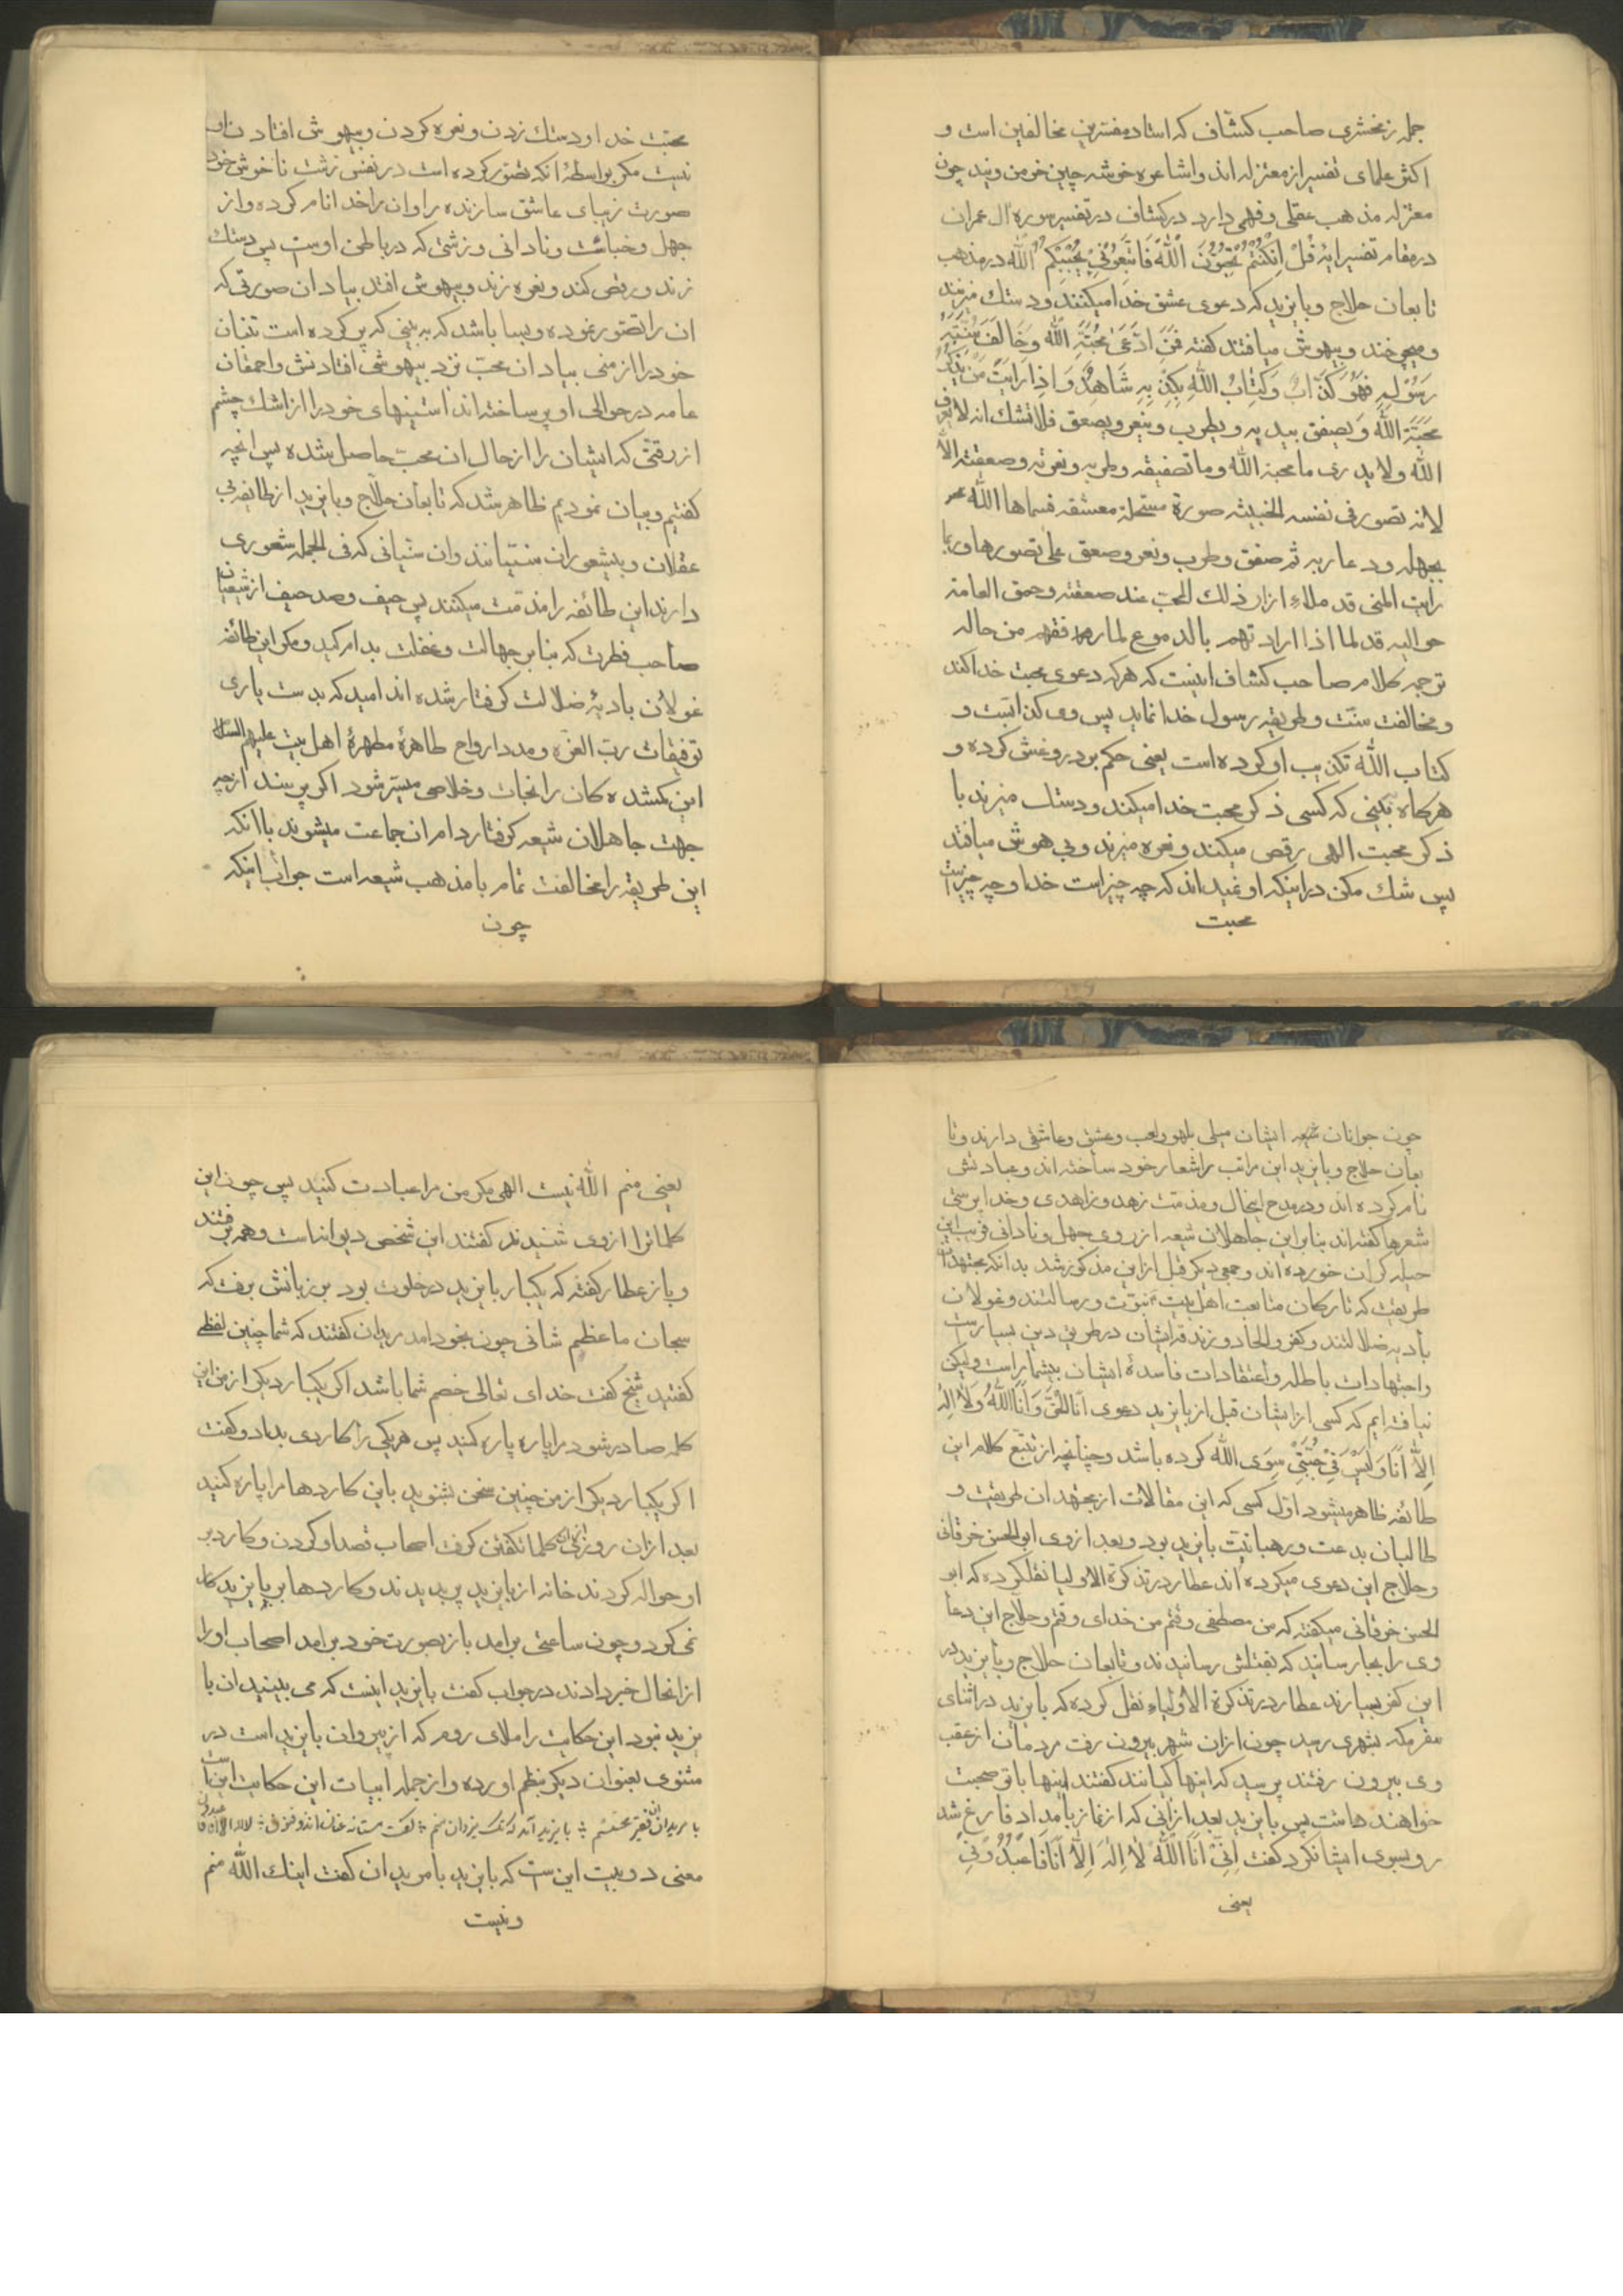 جمله زمخشری صاحب کشاف که استاد مفسرین مخالفین است و
اکثر علمای تفسیر از معتزله اند و اشاعره خوشه چین خرمن ویند چون
معتزله مذهب عقلی و فهمی دارد در کشاف در تفسیر سوره ال عمران
در مقام تفسیر ایهٔ قُلْ اِنْ كُنْتُمْ تُحِبُّونَ اللّٰهَ فَاتَّبِعُونِي يُحْبِبْكُمُ اللّٰه در مذهب
تابعان حلاج و بایزید که دعوی عشق خدا میکنند و دستك میزنند
و میچرخند و بیهوش میافتند کفته فَمَنِ ادَّعَىٰ مَحَبَّةَ اللّٰهِ وَخَالَفَ سُنَّةَ
رَسُوْلِهِ فَهُوَ كَذَّابٌ وَكِتَابُ اللّٰهِ يُكَذِّبُهُ وَاِذَا رَاَيْتَ مَنْ يَذْكُرُ
مَحَبَّةَ اللّٰهِ وَيصفق بيديه و يطرب وينعر ويصعق فلا تشك انه لا يعرف
اللّٰه ولا يدرى ما محبة اللّٰه وما تصفيقه وطربه ونعرته وصعقته الّا
لانه تصور فى نفسه الخبيثه صورة مستملحة معشقه فسماها اللّٰه
بجهله ودعارته ثم صفق وطرب ونعر وصعق على تصورها وربما
رايت المنى قد ملاء ازار ذلك المحب عند صعقته وحمق العامة
حواليه قد ملاوا اردانهم بالدموع لما رققهم من حاله
ترجمه کلام صاحب کشاف اینست که هرکه دعوی محبت خدا کند
و مخالفت سنّت و طریقه رسول خدا نماید پس وی کذابست و
کتاب اللّٰه تکذیب او کرده است یعنی حکم بدروغش کرده و
هرکاه بینی که کسی ذکر محبت خدا میکند و دستك میزند با
ذکر محبت الهی رقص میکند و نعره میزند و بی هوش میافتد
پس شك مکن در اینکه او نمیداند که چه چیز است خدا و چه چیز است
محبت
محبّت خدا و دستك زدن و نعره کردن و بیهوش افتادن او
نیست مکر بواسطهٔ انکه تصوّر کرده است در نفس زشت ناخوش خود
صورت زیبای عاشق سازنده را و ان را خدا نام کرده و از
جهل و خباثت و نادانی و زشتی که در باطن اوست پس دستك
زند و رقص کند و نعره زند و بیهوش افتد بیاد ان صورتی که
ان را تصوّر نموده و بسا باشد که به بینی که پر کرده است تنبان
خود را از منی بیاد ان محبّ نزد بیهوشی افتادنش و احمقان
عامه در حوالی او پر ساخته اند استینهای خود را از اشك چشم
از رقّتی که ایشان را از حال ان محبّ حاصل شده پس انچه
کفتیم و بیان نمودیم ظاهر شد که تابعان حلّاج و بایزید از طایفهٔ بی
عقلان و بیشعوران سنّیانند و ان سنّیانی که فی الجمله شعوری
دارند این طائفه را مذمّت میکنند پس حیف و صد حیف از شیعیان
صاحب فطرت که بنابر جهالت و غفلت بدام کید و مکر این طائفه
غولان بادیهٔ ضلالت کرفتار شده اند امید که بدست یاری
توفیقات ربّ العزّه و مدد ارواح طاهرهٔ مطهرهٔ اهل بیت علیهم السلام
این کمشده کان را نجات و خلاصی میسّر شود اکر پرسند از چه
جهت جاهلان شیعه کرفتار دام ان جماعت میشوند با انکه
این طریقه را مخالفت تمام با مذهب شیعه است جواب اینکه
چون
چون جوانان شیعه ایشان میلی بلهو و لعب و عشق و عاشقی دارند و تا
بعان حلاج و بایزید این مراتب را شعار خود ساخته اند و عبادتش
نام کرده اند و در مدح اینحال و مذمت زهد و زاهدی و خدا پرستی
شعرها کفته اند بنابراین جاهلان شیعه از روی جهل و نادانی فریب این
حیله کران خورده اند و جمعی دیکر قبل از این مذکور شد بدانکه مجتهدان
طریقت که تارکان متابعت اهل بیت نبوّت و رسالتند و غولان
بادیه ضلالتند و کفر و الحاد و زندقه ایشان در طریق دین بسیار است
و اجتهادات باطله و اعتقادات فاسدهٔ ایشان بیشمار است و لیکن
نیافته ایم که کسی از ایشان قبل از بایزید دعوی اَنَا الْحَقّ وَ اَنَا اللّٰهُ وَلَا اِلٰهَ
اِلَّا اَنَا وَلَیْسَ فِیْ جُبَّتِیْ سِوَی اللّٰه کرده باشد و چنانچه از تتبّع کلام این
طائفه ظاهر میشود اوّل کسی که این مقالات از مجتهدان طریقت و
طالبان بدعت و رهبانیّت بایزید بود و بعد از وی ابوالحسن خرقانی
و حلاج این دعوی میکرده اند عطار در تذکرة الاولیا نقلکرده که ابو
الحسن خرقانی میکفته که من مصطفی وقتم من خدای وقتم و حلّاج این دعا
وی را بجار سانید که بقتلش رسانیدند و تابعان حلاج و بایزید در
این کفر بسیارند عطار در تذکرة الاولیاء نقل کرده که بایزید در اثنای
سفر مکه بشهری رسید چون از ان شهر بیرون رفت مردمان از عقب
وی بیرون رفتند پرسید که اینها کیانند کفتند اینها باتو صحبت
خواهند داشت پس بایزید بعد از انی که از نماز بامداد فارغ شد
رو بسوی ایشانکرد کفت اِنِّیْ اَنَا اللّٰهُ لَا اِلٰهَ اِلَّا اَنَا فَاعْبُدُوْنِیْ
یعنی
یعنی منم اللّٰه نیست الهی مکر من مرا عبادت کنید پس چون این
کلماترا از وی شنیدند کفتند این شخص دیوانه است و همه برفتند
و باز عطار کفته که یکبار بایزید در خلوت بود بر زبانش برفت که
سبحان ما عظم شانی چون بخود امد مریدان کفتند که شما چنین لفظی
کفتید شیخ کفت خدای تعالی خصم شما باشد اکر یکبار دیکر از من این
کلمه صادر شود مرا پاره پاره کنید پس هر یکی را کاردی بداد و کفت
اکر یکبار دیکر از من چنین سخن بشنوید باین کاردها مرا پاره کنید
بعد از ان روزی کلمات کفتن کرفت اصحاب قصد او کردن و کارد بر
او حواله کردند خانه از بایزید پر بدیدند و کاردها بر بایزید کار
نمی کرد و چون ساعتی برامد باز بصورت خود برامد اصحاب او را
از انحال خبر دادند در جواب کفت بایزید اینست که می بینید ان با
یزید نبود این حکایت را ملای روم که از پیروان بایزید است در
مثنوی بعنوان دیکر بنظم اورده و از جمله ابیات این حکایت این است
با مریدان ان فقیر محتشم بایزید آمد که نك یزدان منم کفت مستانه عیان ان ذوفنون لا اله الا انا فاعبدون
معنی دو بیت این ست که بایزید با مریدان کفت اینك اللّٰه منم
و نیست